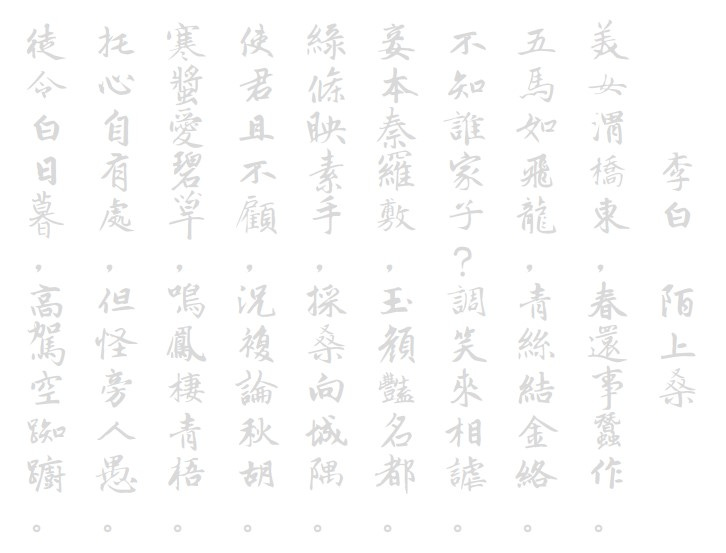 李白 陌上桑
美女渭橋東,春還事蠶作。
五馬如飛龍,青絲結金絡。
不知誰家子?調笑來相謔。
妾本秦羅敷,玉顏豔名都。
綠條映素手,採桑向城隅。
使君且不顧,況複論秋胡。
寒螿愛碧草,鳴鳳棲青梧。
托心自有處,但怪旁人愚。
徒令白日暮,高駕空踟躕。